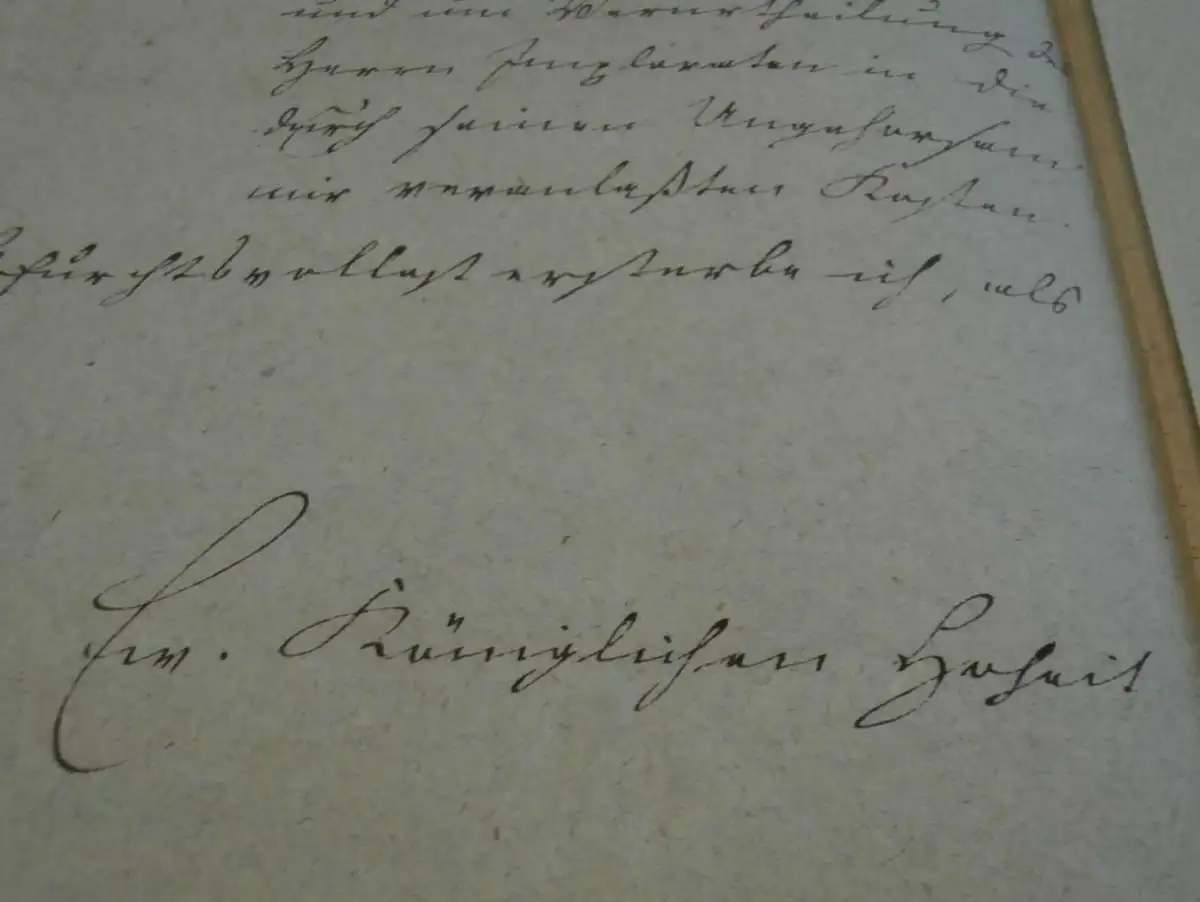 und um Verurtheilung de
Herrn Imploraten in die
durch seinen Ungehorsam
mir veranlaßten Kosten.
furchtsvollest ersterbe ich, als
Ew. Königlichen Hoheit